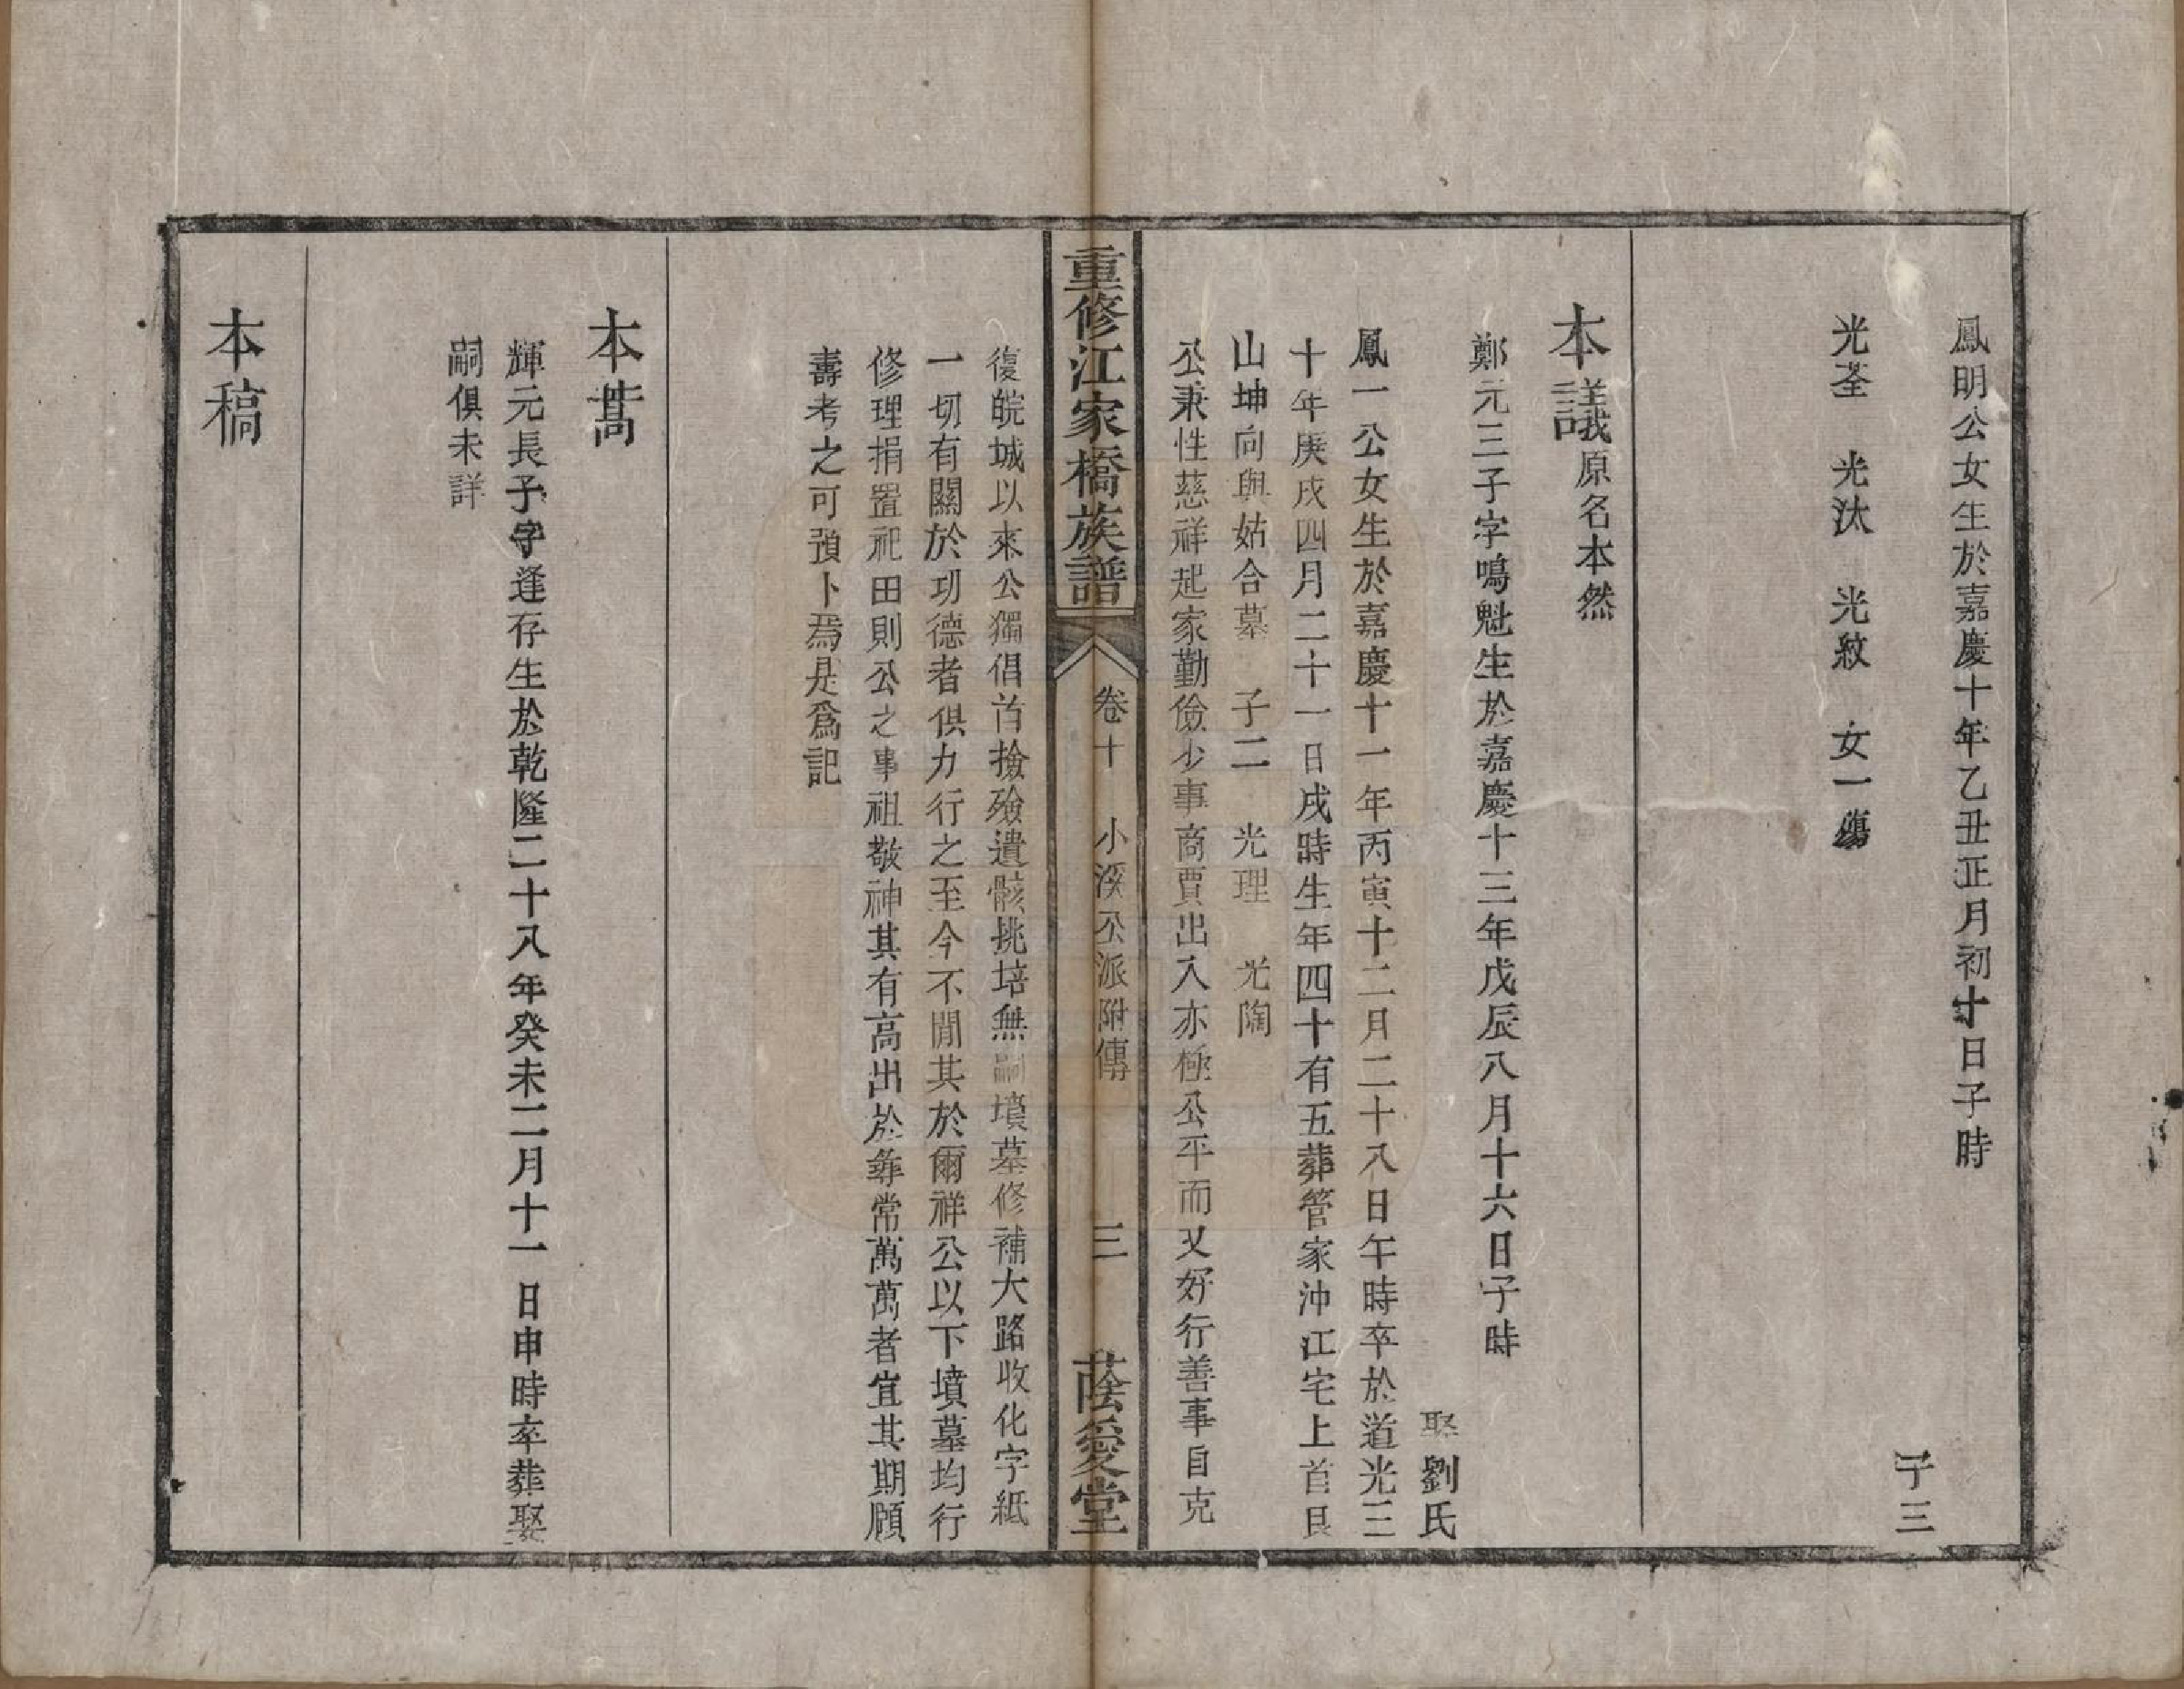 鳳明公女生於嘉慶十年乙丑正月初十日子時
子三
光荃　光汰　光紋　女一殤
本議原名本然
鄭元三子字鳴魁生於嘉慶十三年戊辰八月十六日子時
娶劉氏
鳳一公女生於嘉慶十一年丙寅十二月二十八日午時卒於道光三
十年庚戌四月二十一日戌時生年四十有五葬管家沖江宅上首艮
山坤向與姑合墓　子二　光理　光陶
公秉性慈祥起家勤儉少事商賈出入亦極公平而又好行善事自克
重修江家橋族譜　卷十　小溪公派附傳　三　蔭愛堂
復皖城以來公獨倡首撿殮遺骸挑培無嗣墳墓修補大路收化字紙
一切有關於功德者俱力行之至今不閒其於爾祥公以下墳墓均行
修理捐置祀田則公之事祖敬神其有高出於尋常萬萬者宜其期頤
壽考之可預卜焉是爲記
本蒿
輝元長子字逢存生於乾隆二十八年癸未二月十一日申時卒葬娶
嗣俱未詳
本稿